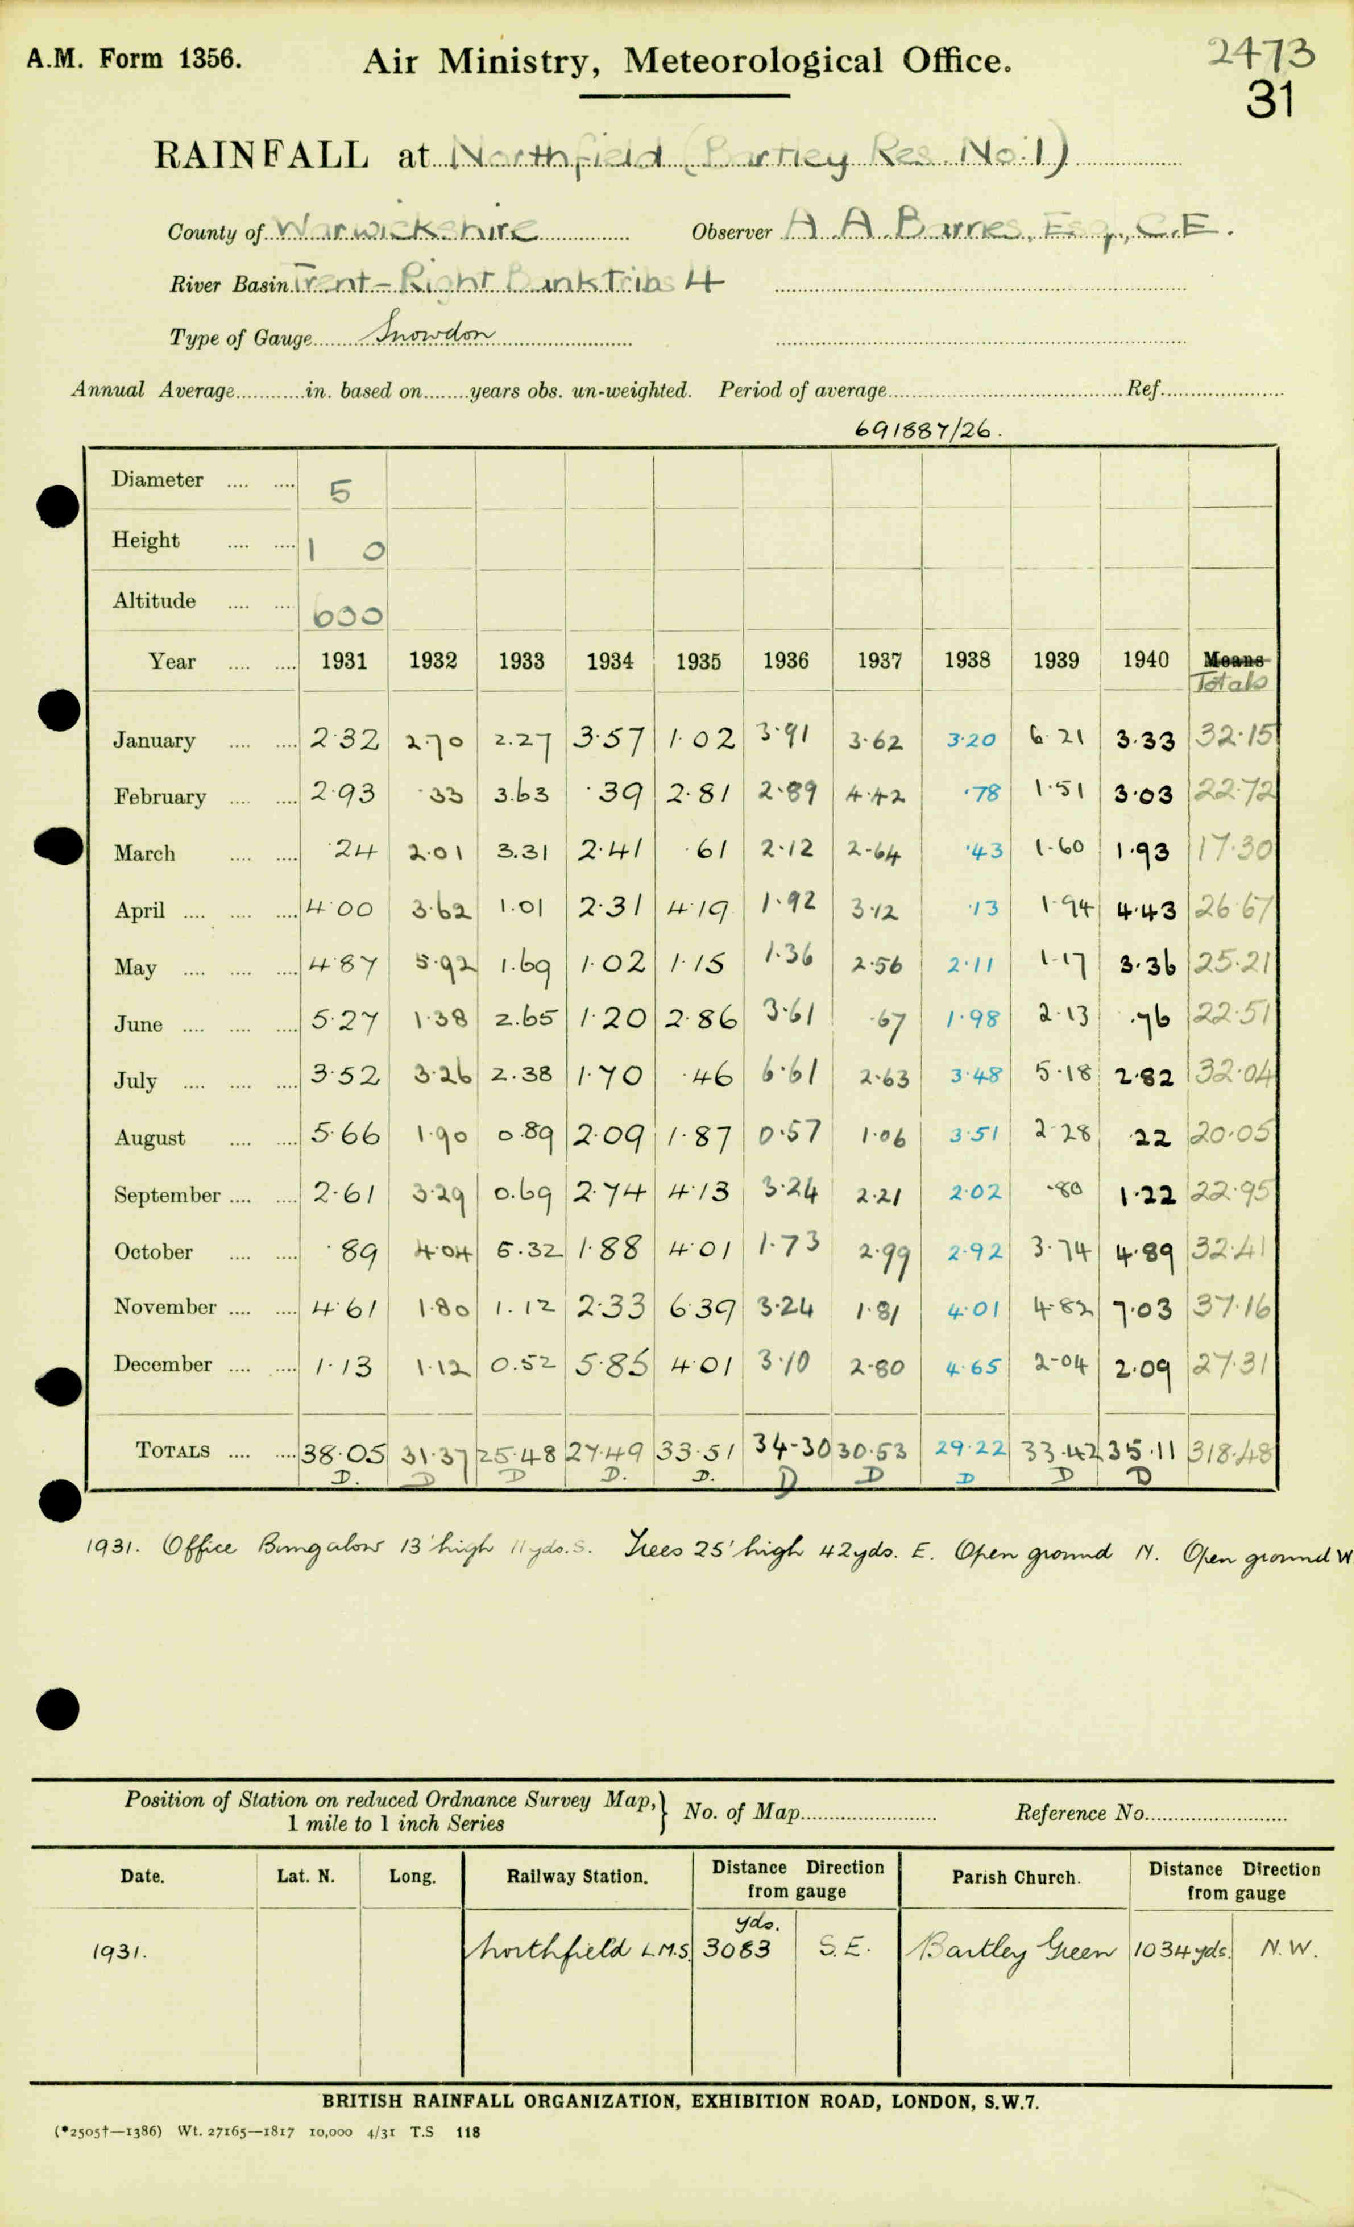 A.M. Form 1356.
Air Ministry, Meteorological Office.
2473
31
RAINFALL at Northfield (Bartley Res. No.1)
County of Warwickshire Observer A A Barnes, Esq., C.E.
River Basin Trent-Right Bank Tribs 4
Type of Gauge Snowdon
Annual Average in. based on years obs. un-weighted. Period of average Ref.
691887/26.
Diameter 5
Height 1 0
Altitude 600
Year 1931 1932 1933 1934 1935 1936 1937 1938 1939 1940 Means
Totals
January 2.32 2.70 2.27 3.57 1.02 3.91 3.62 3.20 6.21 3.33 32.15
February 2.93 .33 3.63 .39 2.81 2.89 4.42 .78 1.51 3.03 22.72
March .24 2.01 3.31 2.41 .61 2.12 2.64 .43 1.60 1.93 17.30
April 4.00 3.62 1.01 2.31 4.19 1.92 3.12 .13 1.94 4.43 26.67
May 4.87 5.92 1.69 1.02 1.15 1.36 2.56 2.11 1.17 3.36 25.21
June 5.27 1.38 2.65 1.20 2.86 3.61 .67 1.98 2.13 .76 22.51
July 3.52 3.26 2.38 1.70 .46 6.61 2.63 3.48 5.18 2.82 32.04
August 5.66 1.90 0.89 2.09 1.87 0.57 1.06 3.51 2.28 .22 20.05
September 2.61 3.29 0.69 2.74 4.13 3.24 2.21 2.02 .80 1.22 22.95
October .89 4.04 5.32 1.88 4.01 1.73 2.99 2.92 3.74 4.89 32.41
November 4.61 1.80 1.12 2.33 6.39 3.24 1.81 4.01 4.82 7.03 37.16
December 1.13 1.12 0.52 5.85 4.01 3.10 2.80 4.65 2.04 2.09 27.31
TOTALS 38.05 31.37 25.48 27.49 33.51 34.30 30.53 29.22 33.42 35.11 318.48
D. D D D. D. D D D D D
1931. Office Bungalow 13' high 11yds. S. Trees 25' high 42yds. E. Open ground N. Open ground W
Position of Station on reduced Ordnance Survey Map, 1 mile to 1 inch Series } No. of Map Reference No.
Date. Lat. N. Long. Railway Station. Distance Direction from gauge Parish Church. Distance Direction from gauge
yds.
1931. Northfield L.M.S. 3083 S.E. Bartley Green 1034yds. N.W.
BRITISH RAINFALL ORGANIZATION, EXHIBITION ROAD, LONDON, S.W.7.
(*2505†—1386) Wt. 27165—1817 10,000 4/31 T.S 118